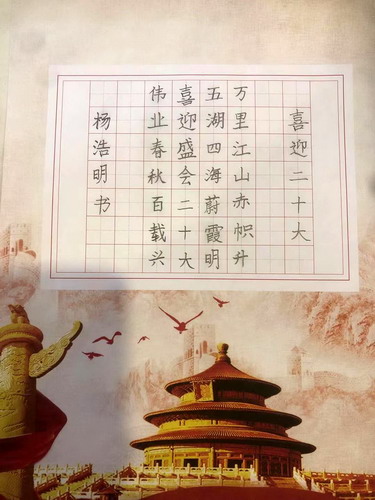 喜迎二十大
万里江山赤帜升
五湖四海蔚霞明
喜迎盛会二十大
伟业春秋百载兴
杨浩明书